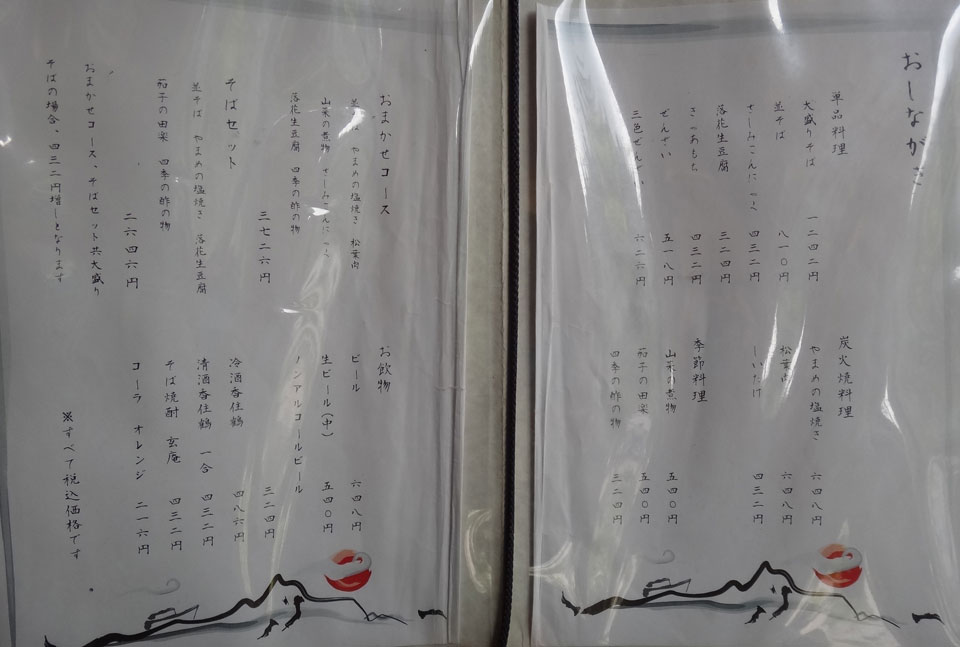 おしながき
単品料理
大盛りそば 一二四二円
並そば 八一〇円
さしみこんにゃく 四三二円
落花生豆腐 三二四円
きのあもち 四三二円
ぜんざい 五一八円
三色ぜんざい 六二六円
炭火焼料理
やまめの塩焼き 六四八円
松葉肉 六四八円
しいたけ 四三二円
季節料理
山菜の煮物 五四〇円
茄子の田楽 五四〇円
四季の酢の物 三二四円
おまかせコース
並そば やまめの塩焼き 松葉肉
山菜の煮物 さしみこんにゃく
落花生豆腐 四季の酢の物
三七二六円
そばセット
並そば やまめの塩焼き 落花生豆腐
茄子の田楽 四季の酢の物
二六四六円
おまかせコース、そばセット共大盛り
そばの場合、四三二円増しとなります
お飲物
ビール 六四八円
生ビール(中) 五四〇円
ノンアルコールビール
三二四円
冷酒香住鶴 四八六円
清酒香住鶴 一合 四三二円
そば焼酎 玄庵 四三二円
コーラ オレンジ 二一六円
※すべて税込価格です